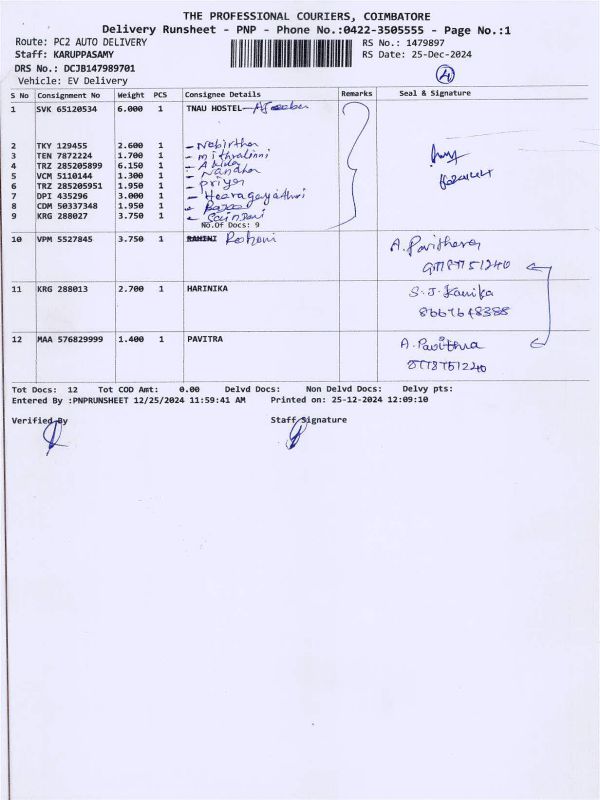 THE PROFESSIONAL COURIERS, COIMBATORE
Delivery Runsheet - PNP - Phone No.:0422-3505555 - Page No.:1
Route: PC2 AUTO DELIVERY RS No.: 1479897
Staff: KARUPPASAMY RS Date: 25-Dec-2024
DRS No.: DCJB147989701
Vehicle: EV Delivery 4
S No Consignment No Weight PCS Consignee Details Remarks Seal & Signature
1 SVK 65120534 6.000 1 TNAU HOSTEL
2 TKY 129455 2.600 1
3 TEN 7872224 1.700 1
4 TRZ 285205899 6.150 1
5 VCM 5110144 1.300 1 - Nandha
6 TRZ 285205951 1.950 1 - Priya
7 DPI 435296 3.000 1 - Heeragayathri
8 CDM 5037348 1.950 1
9 KRG 288027 3.750 1
No.Of Docs: 9
10 VPM 5527845 3.750 1 RAHINI Rohani A. Pavithera
11 KRG 288013 2.700 1 HARINIKA S. J. Kanika
8667648388
12 MAA 576829999 1.400 1 PAVITRA A. Pavithra
Tot Docs: 12 Tot COD Amt: 0.00 Delvd Docs: Non Delvd Docs: Delvy pts:
Entered By :PNPRUNSHEET 12/25/2024 11:59:41 AM Printed on: 25-12-2024 12:09:10
Verified By Staff Signature